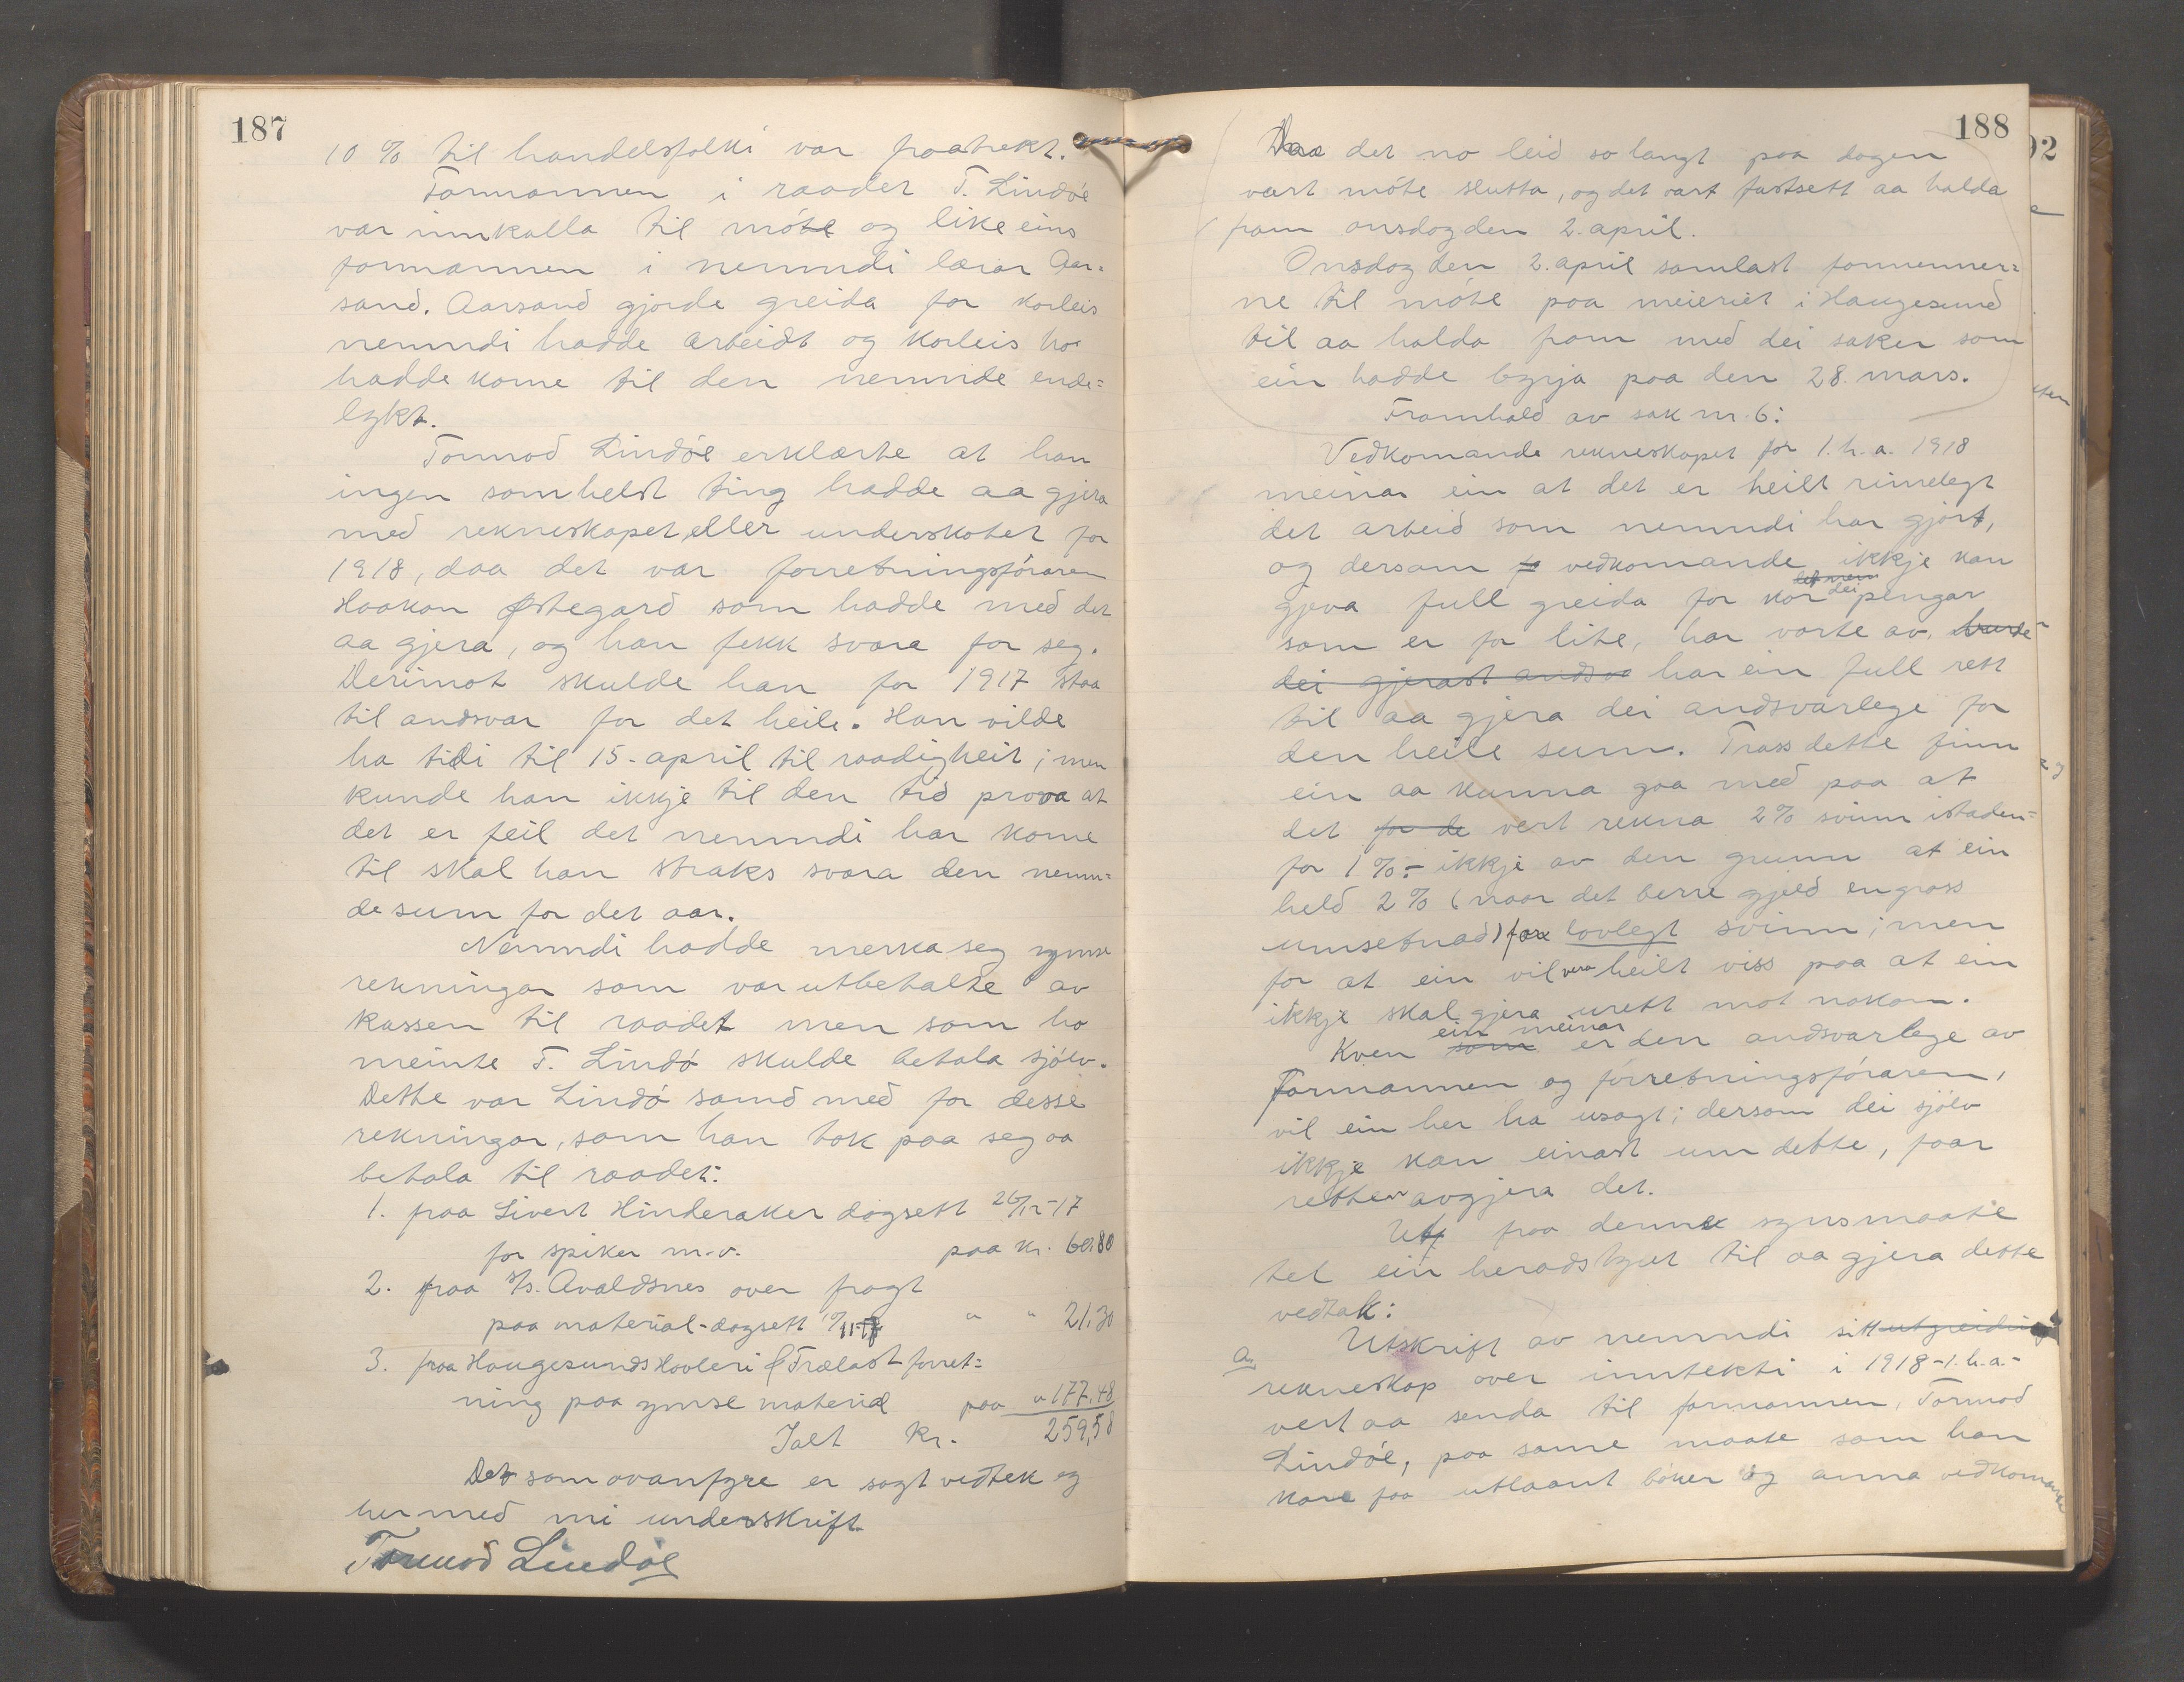 187
10 % til handelsfolki var fraatrekt.
Formannen i raadet T. Lindøe
var innkalla til møte og like eins
formannen i nemndi lærar Aar-
sand. Aarsand gjorde greida for korleis
nemndi hadde arbeidt og korleis ho
hadde kome til den nemnde ende-
lykt.
Tormod Lindøe erklærte at han
ingen somhelst ting hadde aa gjera
med rekneskapet eller underskotet for
1918, daa det var forretningsføraren
Haakon Østegard som hadde med det
aa gjera, og han fekk svara for seg.
Derimot skulde han for 1917 staa
til andsvar for det heile. Han vilde
ha tidi til 15. april til raadigheit; men
kunde han ikkje til den tid prova at
det er feil det nemndi har kome
til skal han straks svara den nemn-
de sum for det aar.
Nemndi hadde merka seg ymse
rekningar som var utbetalte av
kassen til raadet men som ho
meinte T. Lindø skulde betala sjølv.
Dette var Lindø samd med for desse
rekningar, som han tok paa seg aa
betala til raadet:
1. fraa Sivert Hinderaker dagsett 26/12-17
for spiker m.v. paa kr. 60,80
2. fraa D/s. Avaldsnes over fragt
paa material-dagsett 10/11-17 " " 21,30
3. fraa Haugesunds Høvleri & Trælast-forret-
ning paa ymse material paa " 177,48
Ialt kr. 259,58
Det som ovanfyre er sagt vedtek eg
hermed mi underskrift
Tormod Lindøe
188
Daa det no leid so langt paa dagen
vart møte slutta, og det vart fastsett aa halda
fram onsdag den 2. april.
Onsdag den 2. april samlast formenner-
ne til møte paa meieriet i Haugesund
til aa halda fram med dei saker som
ein hadde byrja paa den 28. mars.
Framhald av sak nr. 6:
Vedkomande rekneskapet for 1. h. a. 1918
meinar ein at det er heilt rimelegt
det arbeid som nemndi har gjort,
og dersom vedkomande ikkje kan
gjeva full greida for kor dei pengar
som er for lite, har vorte av,
dei gjerast andsva har ein full rett
til aa gjera dei andsvarlege for
den heile sum. Trass dette finn
ein aa kunna gaa med paa at
det for de vert rekna 2% svinn istaden-
for 1%.- ikkje av den grunn at ein
held 2% (naar det berre gjeld engross
umsetnad) for lovlegt svinn; men
for at ein vil vera heilt viss paa at ein
ikkje skal gjera urett mot nokon.
Kven som ein meinar er den andsvarlege av
formannen og forretningsføraren,
vil ein her ha usagt; dersom dei sjølv
ikkje kan einast um dette, faar
retten avgjera det.
Ut fraa denne synsmaate
tel ein heradstyret til aa gjera dette
vedtak:
a, Utskrift av nemndi sitt utgreiding
rekneskap over inntekti i 1918-1. h.a.-
vert aa senda til formannen, Tormod
Lindøe, paa same maate som han
kare faa utlaant bøker og anna vedkomande
92